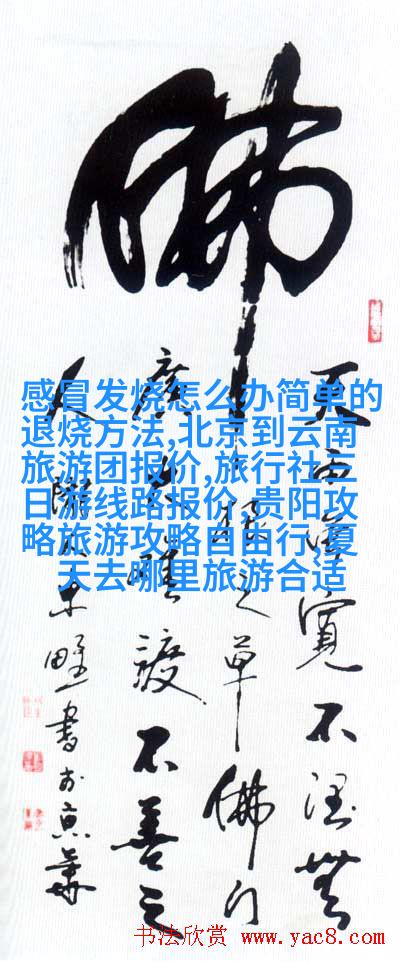 佛
天雨虽宽不润无
根之草佛门
广大难渡不善之
人
书于京华
感冒发烧怎么办简单的
退烧方法,北京到云南
旅游团报价,旅行社三
日游线路报价,贵阳攻
略旅游攻略自由行,夏
天去哪里旅游合适
书法欣赏 www.yac8.com